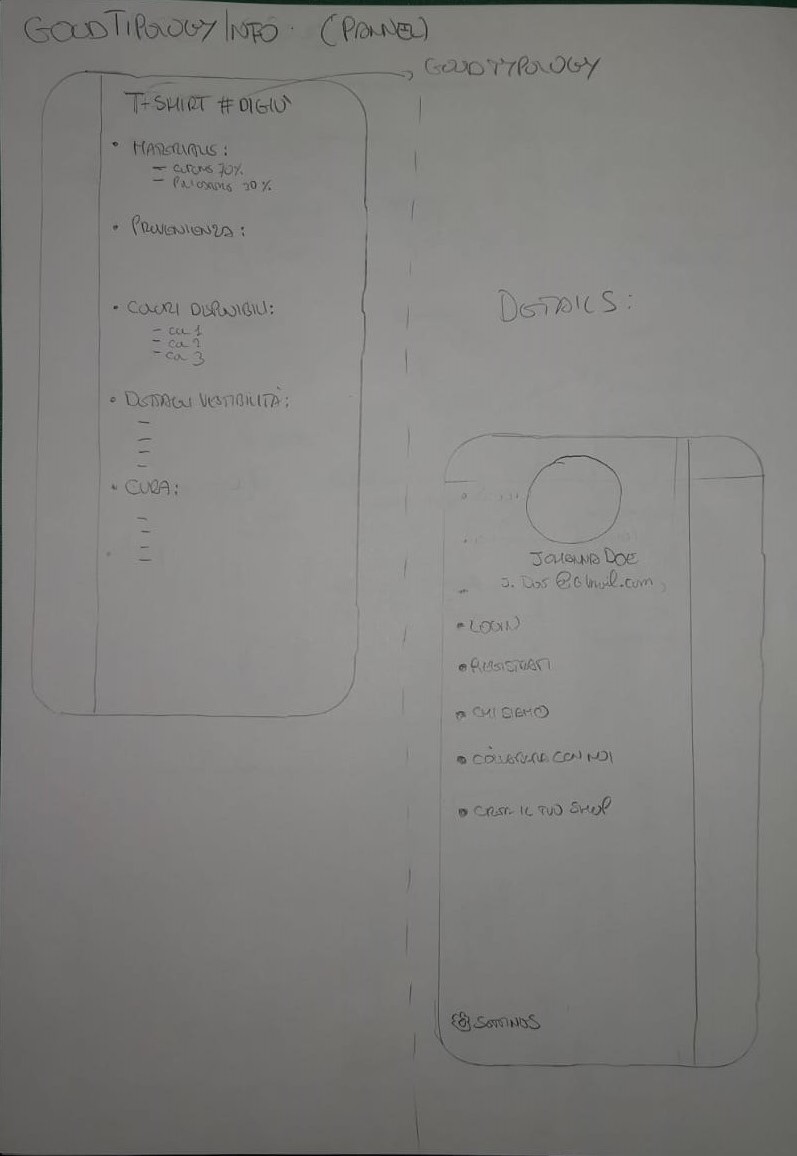 GOODTIPOLOGY/INFO. (PANNEL)
GOODTYPOLOGY
T-SHIRT #DIGIU'
• MATERIALE:
- COTONE 70%
- POLIESTERE 30%
• PROVENIENZA:
• COLORI DISPONIBILI:
- COL 1
- COL 2
- COL 3
• DETTAGLI VESTIBILITÀ:
-
-
-
-
• CURA:
-
-
-
-
DETAILS:
JOHANNA DOE
J. DOE @Gmail.com
• LOGIN
• REGISTRATI
• CHI SIAMO
• COLLABORA CON NOI
• CREA IL TUO SHOP
SETTINGS